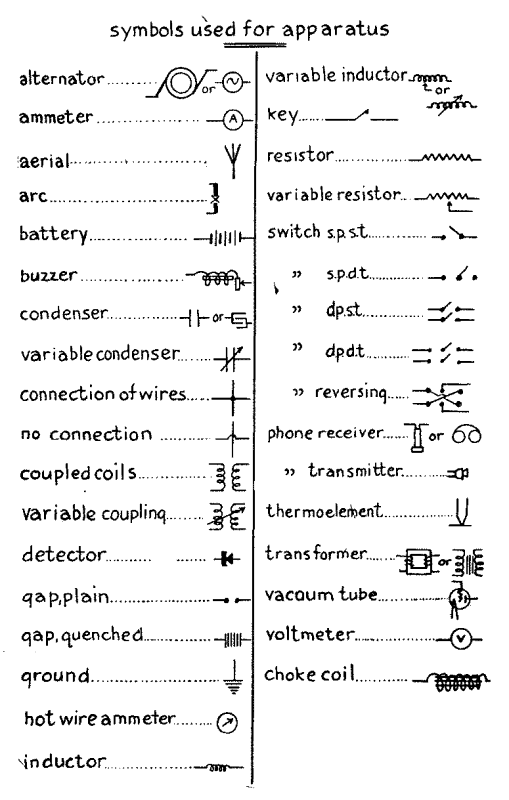 symbols used for apparatus
alternator or
ammeter A
aerial
arc
battery
buzzer
condenser or
variable condenser
connection of wires
no connection
coupled coils
variable coupling
detector
gap, plain
gap, quenched
ground
hot wire ammeter
inductor
variable inductor
or
key
resistor
variable resistor
switch s.p.s.t.
" s.p.d.t.
" d.p.s.t.
" d.p.d.t.
" reversing
phone receiver or
" transmitter
thermoelement
transformer or
vacuum tube
voltmeter V
choke coil